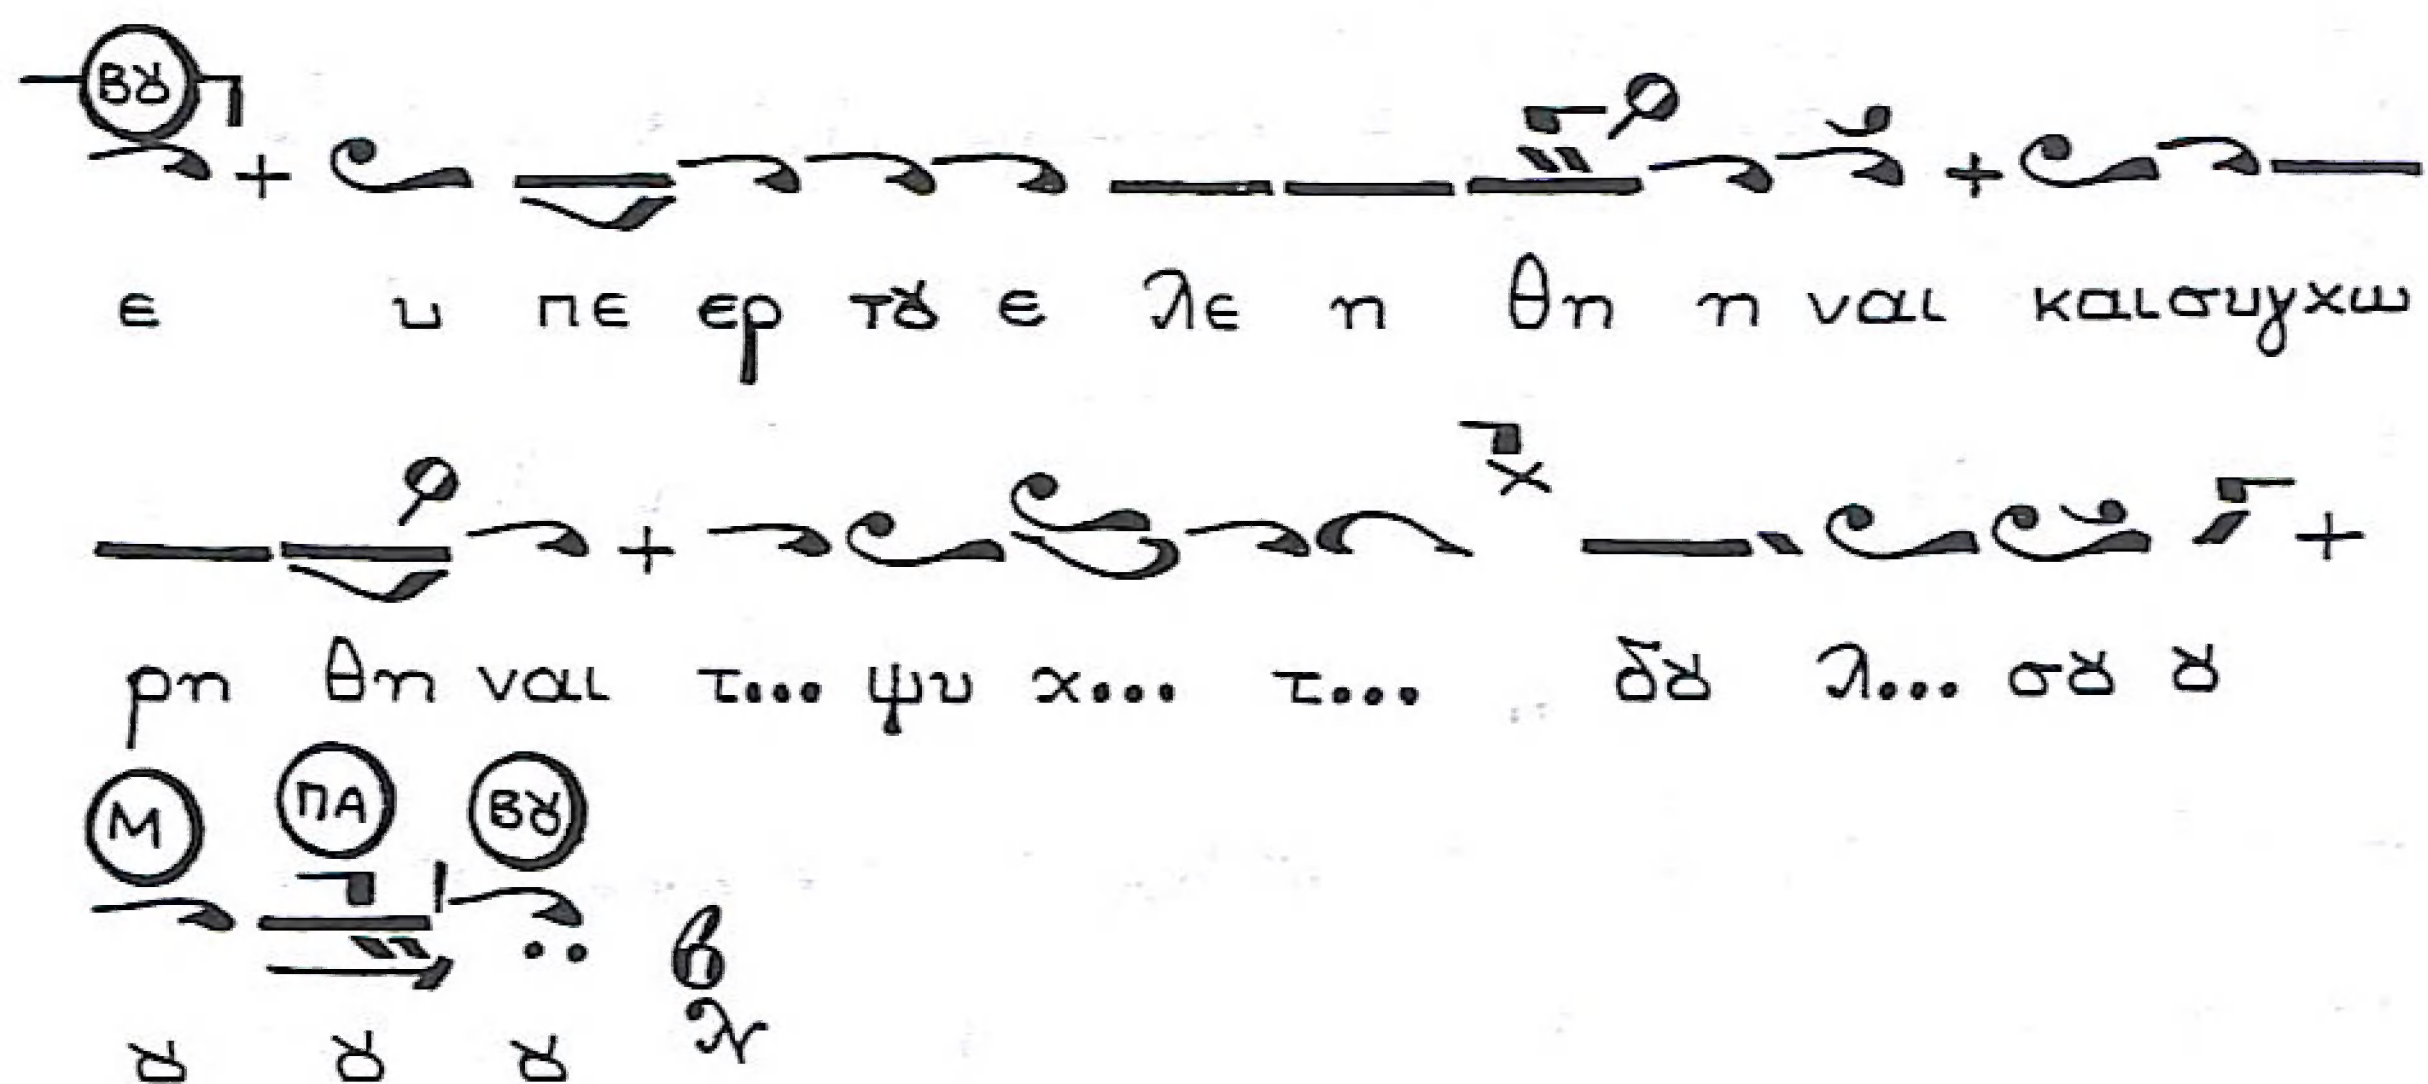 Βȣ
ε υ πε ερ τȣ ε λε η θη η ναι και συγχω
ρη θη ναι τ... ψυ χ... τ... δȣ λ... σȣ ȣ
Μ ΠΑ Βȣ
ȣ ȣ ȣ